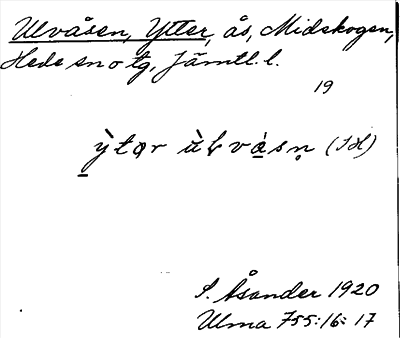 Ulvåsen, Ytter, ås, Midskogen,
Hede sn o tg, Jämtl. l.
19
ỳ̱tər ùɫvá̱sn̥ (IH)
S. Åsander 1920
Ulma 755:16:17